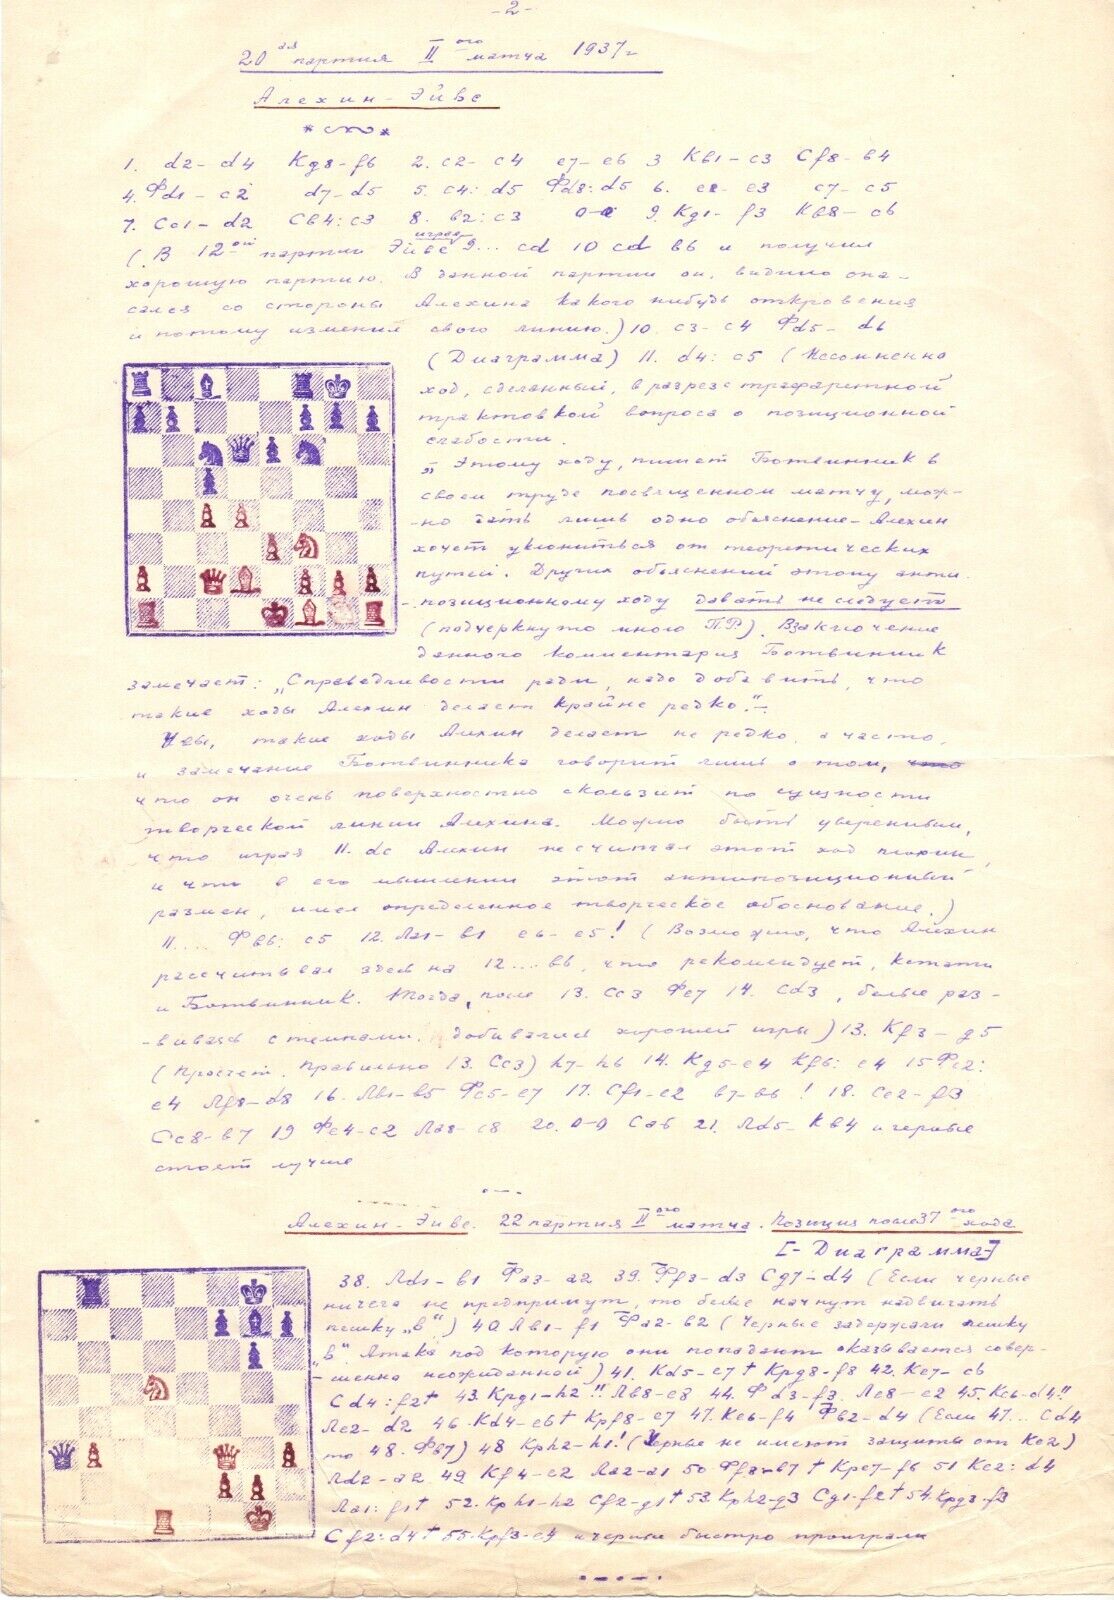 -2-
20ая партия IIого матча 1937г
Алехин-Эйве
1. d2-d4 Кg8-f6 2. c2-c4 e7-e6 3 Кb1-c3 Cf8-b4
4. Фd1-c2 d7-d5 5. c4:d5 Фd8:d5 6. e2-e3 c7-c5
7. Cc1-d2 Cb4:c3 8. b2:c3 0-0 9. Кg1-f3 Кb8-c6
(В 12ой партии Эйве играл 9... cd 10 cd b6 и получил
хорошую партию. В данной партии он, видимо опа-
сался со стороны Алехина какого нибудь откровения
и потому изменил свою линию.) 10. c3-c4 Фd5-d6
(Диаграмма) 11. d4:c5 (Несомненно
ход, сделанный, в разрез с трафаретной
трактовкой вопроса о позиционной
слабости.
„Этому ходу, пишет Ботвинник в
своем труде посвященном матчу, мож-
-но дать лишь одно объяснение - Алехин
хочет уклониться от теоретических
путей. Других объяснений этому анти-
-позиционному ходу давать не следует
(подчеркнуто мною П.Р). В заключение
данного комментария Ботвинник
замечает: „Справедливости ради, надо добавить, что
такие ходы Алехин делает крайне редко."-
Увы, такие ходы Алехин делает не редко, а часто,
и замечание Ботвинника говорит лишь о том, что
что он очень поверхностно скользит по сущности
творческой линии Алехина. Можно быть уверенным,
что играя 11. dc Алехин не считал этот ход плохим,
и что в его мышлении этот антипозиционный
размен, имел определенное творческое обоснование.)
11.... Фd6:c5 12. Ла1-b1 e6-e5! (Возможно, что Алехин
рассчитывал здесь на 12...b6, что рекомендует, кстати
и Ботвинник. Тогда, после 13. Сc3 Фe7 14. Cd3, белые раз-
-виваясь с темпами. добивались хорошей игры) 13. Кf3-g5
(Просчет. Правильно 13. Сc3) h7-h6 14. Кg5-e4 Кf6:e4 15 Фc2:
e4 Лf8-d8 16. Лb1-b5 Фc5-e7 17. Cf1-e2 b7-b6! 18. Ce2-f3
Cc8-b7 19 Фe4-c2 Ла8-c8 20. 0-0 Са6 21. Лd5 Кb4 и черные
стоят лучше
Алехин-Эйве. 22 партия IIого матча. Позиция после 37ого хода
[-Диаграмма-]
38. Лd1-b1 Фа3-а2 39. Фf3-d3 Cg7-d4 (Если черные
ничего не предпримут, то белые начнут надвигать
пешку „b") 40 Лb1-f1 Фа2-b2 (Черные задержали пешку
„b". Атака под которую они попадают оказывается совер-
-шенно неожиданной) 41. Кd5-e7† Крg8-f8 42. Кe7-c6
Cd4:f2† 43. Крg1-h2!! Лb8-e8 44. Фd3-f3 Лe8-e2 45. Кc6-d4!!
Лe2-d2 46. Кd4-e6† Крf8-e7 47. Кe6-f4 Фb2-d4 (Если 47... Cd4
то 48. Фb7) 48 Крh2-h1! (Черные не имеют защиты от Кe2)
Лd2-а2 49 Кf4-e2 Ла2-а1 50 Фf3-b7† Крe7-f6 51 Кe2:d4
Ла1:f1† 52. Крh1-h2 Cf2-g1† 53. Крh2-g3 Cg1-f2† 54. Крg3-f3
Cf2:d4† 55. Крf3-e4 и черные быстро проиграли